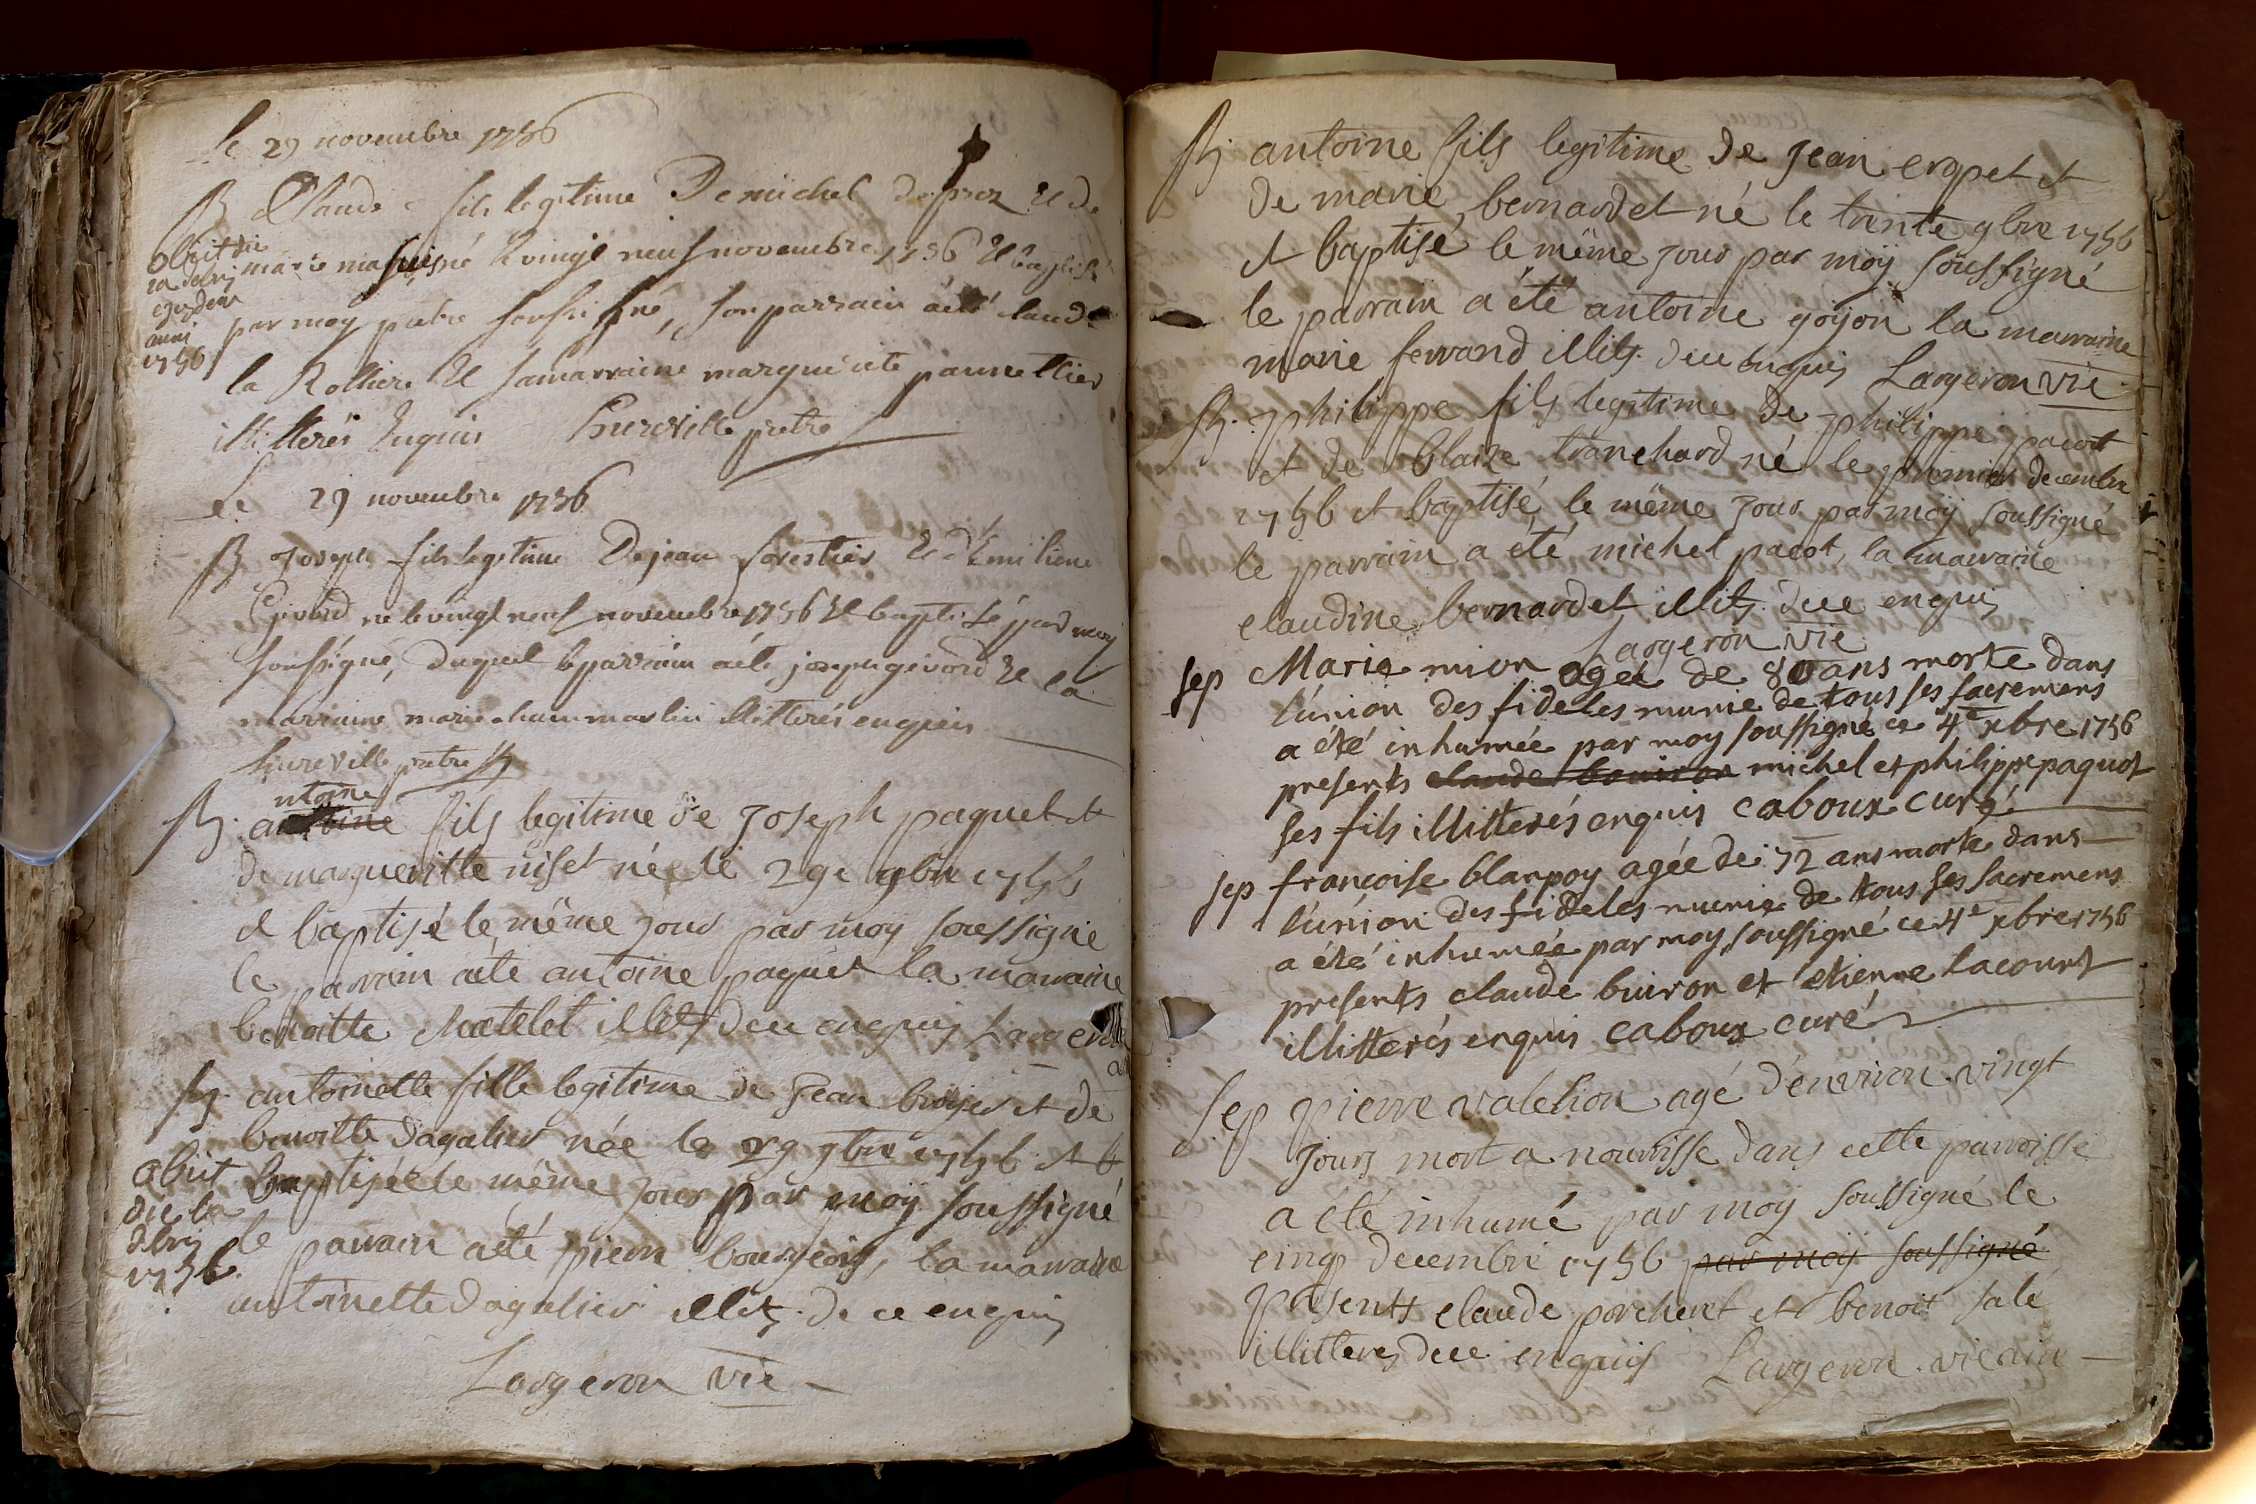 Le 29 novembre 1756
B Claude fils legitime De michel Depraz Et de
marie né le vingt neuf novembre 1756 Et baptisé
par moy prêtre soussigné, son parrain a été claude
la Rolliere Et sa marraine marguerite
illitterés Enquis hureville prêtre
obiit die
ejusdem
anni
1756
Le 29 novembre 1756
B Joseph fils legitime De jean forestier Et d'Emiliene
Givord né le vingt neuf novembre 1756 Et baptisé par moy
soussigné, duquel le parrain a été joseph givord Et la
marraine marie illitterés enquis
hureville prêtre
ntoine
B. antoine fils legitime de Joseph paquet et
de margueritte niset né le 29e 9bre 1756
et baptisé le même jour par moy soussigné
le parrain a été antoine paquet la marraine
benoitte chatelet illits de ce enquis Largeron
B. antoinette fille legitime de Jean broyer et de
benoitte dagalier née le 29 9bre 1756 et
baptisée le même jour par moy soussigné
le parrain a été pierre bourgeois, la marraine
antoinette dagalier illits. de ce enquis
Largeron vic
obiit
die 1a
xbris
1756.
B antoine fils legitime de Jean erqpet et
de marie bernardet né le trente 9bre 1756
et baptisé le même jour par moy soussigné
le parrain a été antoine goyon la marraine
marie ferrand illits. de ce enquis Largeron vic
B. philippe fils legitime de philippe pacot
et de Blaize tranchard né le premier decembre
1756 et baptisé le même jour par moy soussigné
le parrain a été michel pacot, la marraine
claudine bernardet illits. de ce enquis
Largeron vic
sep Marie mion agée de 80 ans morte dans
l'union des fideles munie de tous ses sacremens
a été inhumée par moy soussigné ce 4e xbre 1756
presents claude bouiron michel et philippe paquot
ses fils illitterés enquis caboux curé
sep francoise blanpoy agée de 72 ans morte dans
l'union des fideles munie de tous ses sacremens
a été inhumée par moy soussigné ce 4e xbre 1756
presents claude buiron et etienne lacourt
illitterés enquis caboux curé
sep pierre valelion agé d'environ vingt
jours mort a nourrisse dans cette parroisse
a été inhumé par moy soussigné le
cinq decembre 1756 par moy soussigné
presents claude porcheret et benoit salé
illitterés de ce enquis Largeron vicaire